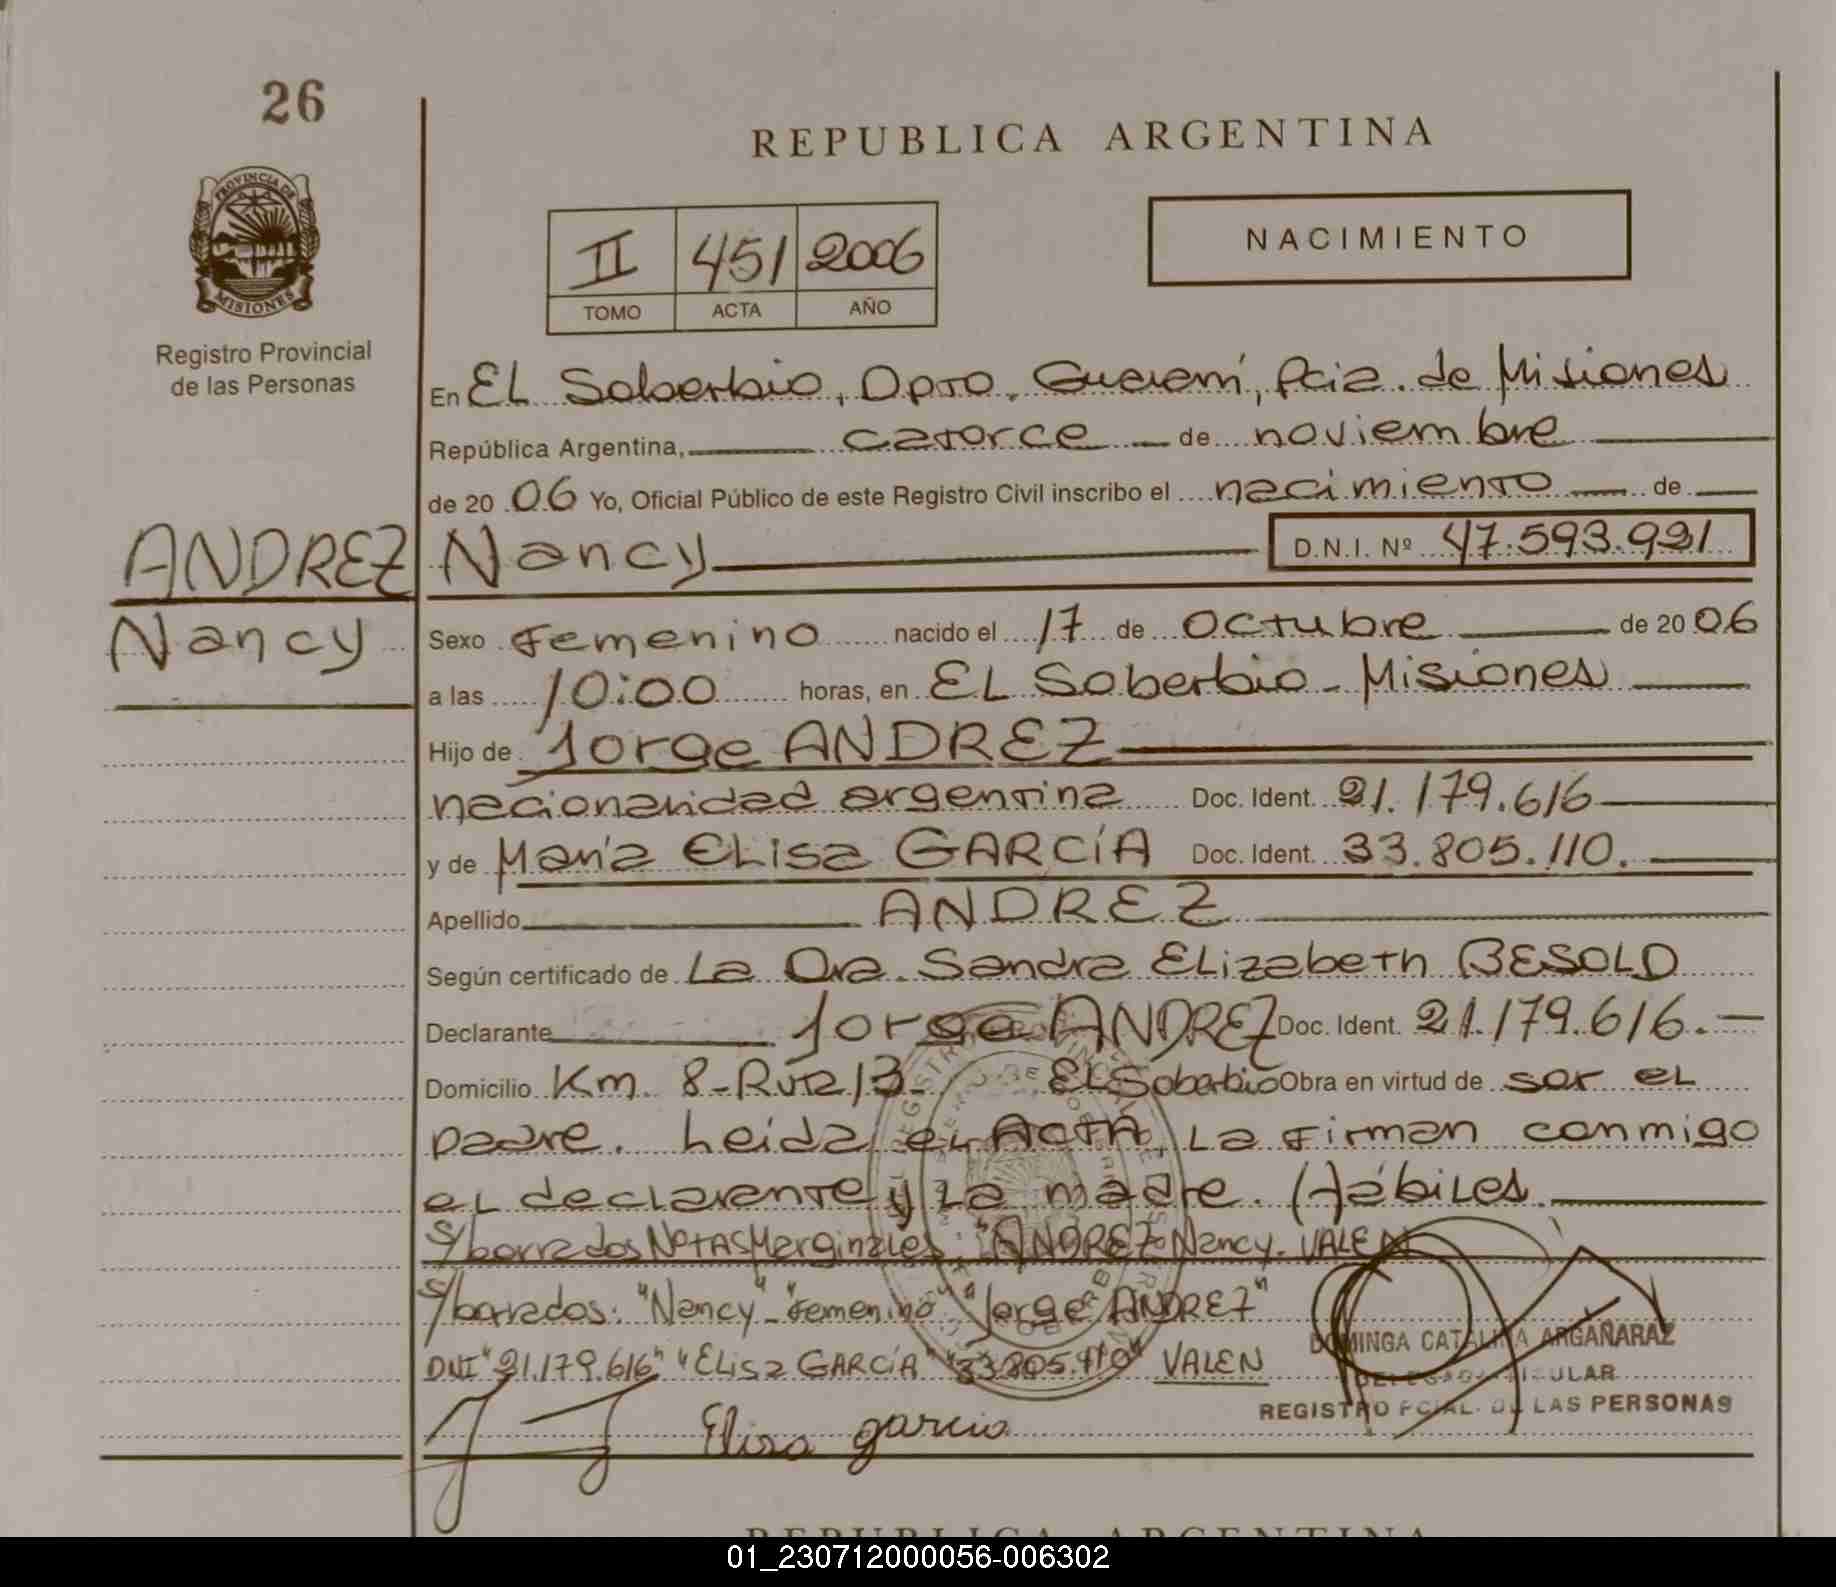 26
REPUBLICA ARGENTINA
PROVINCIA DE
MISIONES
Registro Provincial
de las Personas
II 451 2006
TOMO ACTA AÑO
NACIMIENTO
En EL Soberbio, Dpto. Guaraní, Pcia. de Misiones
República Argentina, catorce de noviembre
de 20 06 Yo, Oficial Público de este Registro Civil inscribo el nacimiento de
ANDREZ Nancy D.N.I. Nº 47.593.991
Nancy
Sexo Femenino nacido el 17 de Octubre de 20 06
a las 10:00 horas, en EL Soberbio - Misiones
Hijo de Jorge ANDREZ
nacionalidad argentina Doc. Ident. 21.179.616
y de María ELisa GARCÍA Doc. Ident. 33.805.110.
Apellido ANDREZ
Según certificado de La Dra. Sandra ELizabeth BESOLD
Declarante Jorge ANDREZ Doc. Ident. 21.179.616.
Domicilio Km. 8 - Ruta 13 - EL Soberbio Obra en virtud de ser el
padre. Leida el ACTA, La firman conmigo
el declarante y La madre. Hábiles.
S/borrados Notas Marginales "ANDREZ Nancy. VALEN
S/borrados: "Nancy" - "Femenino" "Jorge ANDREZ"
DNI "21.179.616" "ELisa GARCÍA" "33.805.110" VALEN
DOMINGA CATALINA ARGAÑARAZ
DELEGADA TITULAR
REGISTRO PCIAL. DE LAS PERSONAS
Elisa garcia
REPUBLICA ARGENTINA
01_230712000056-006302